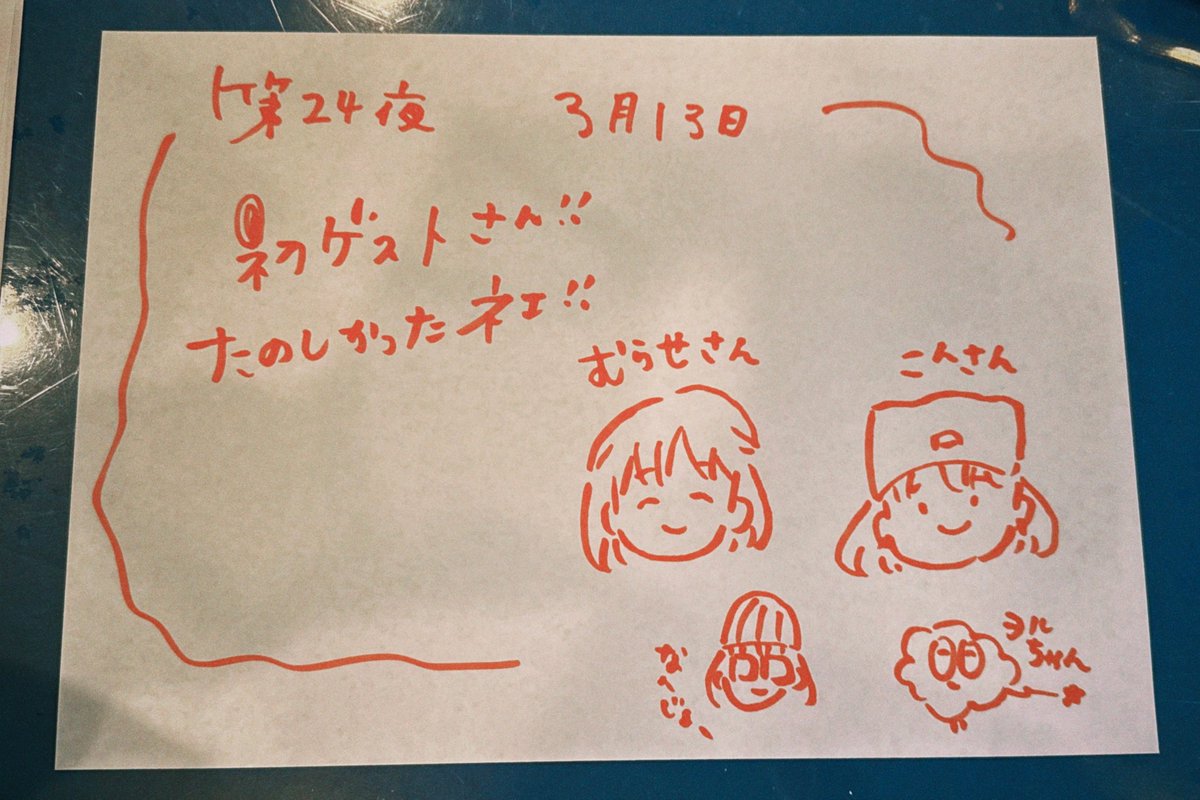 第24夜 3月13日
初ゲストさん!!
たのしかったネエ!!
むらせさん
こんさん
ヨルちゃん